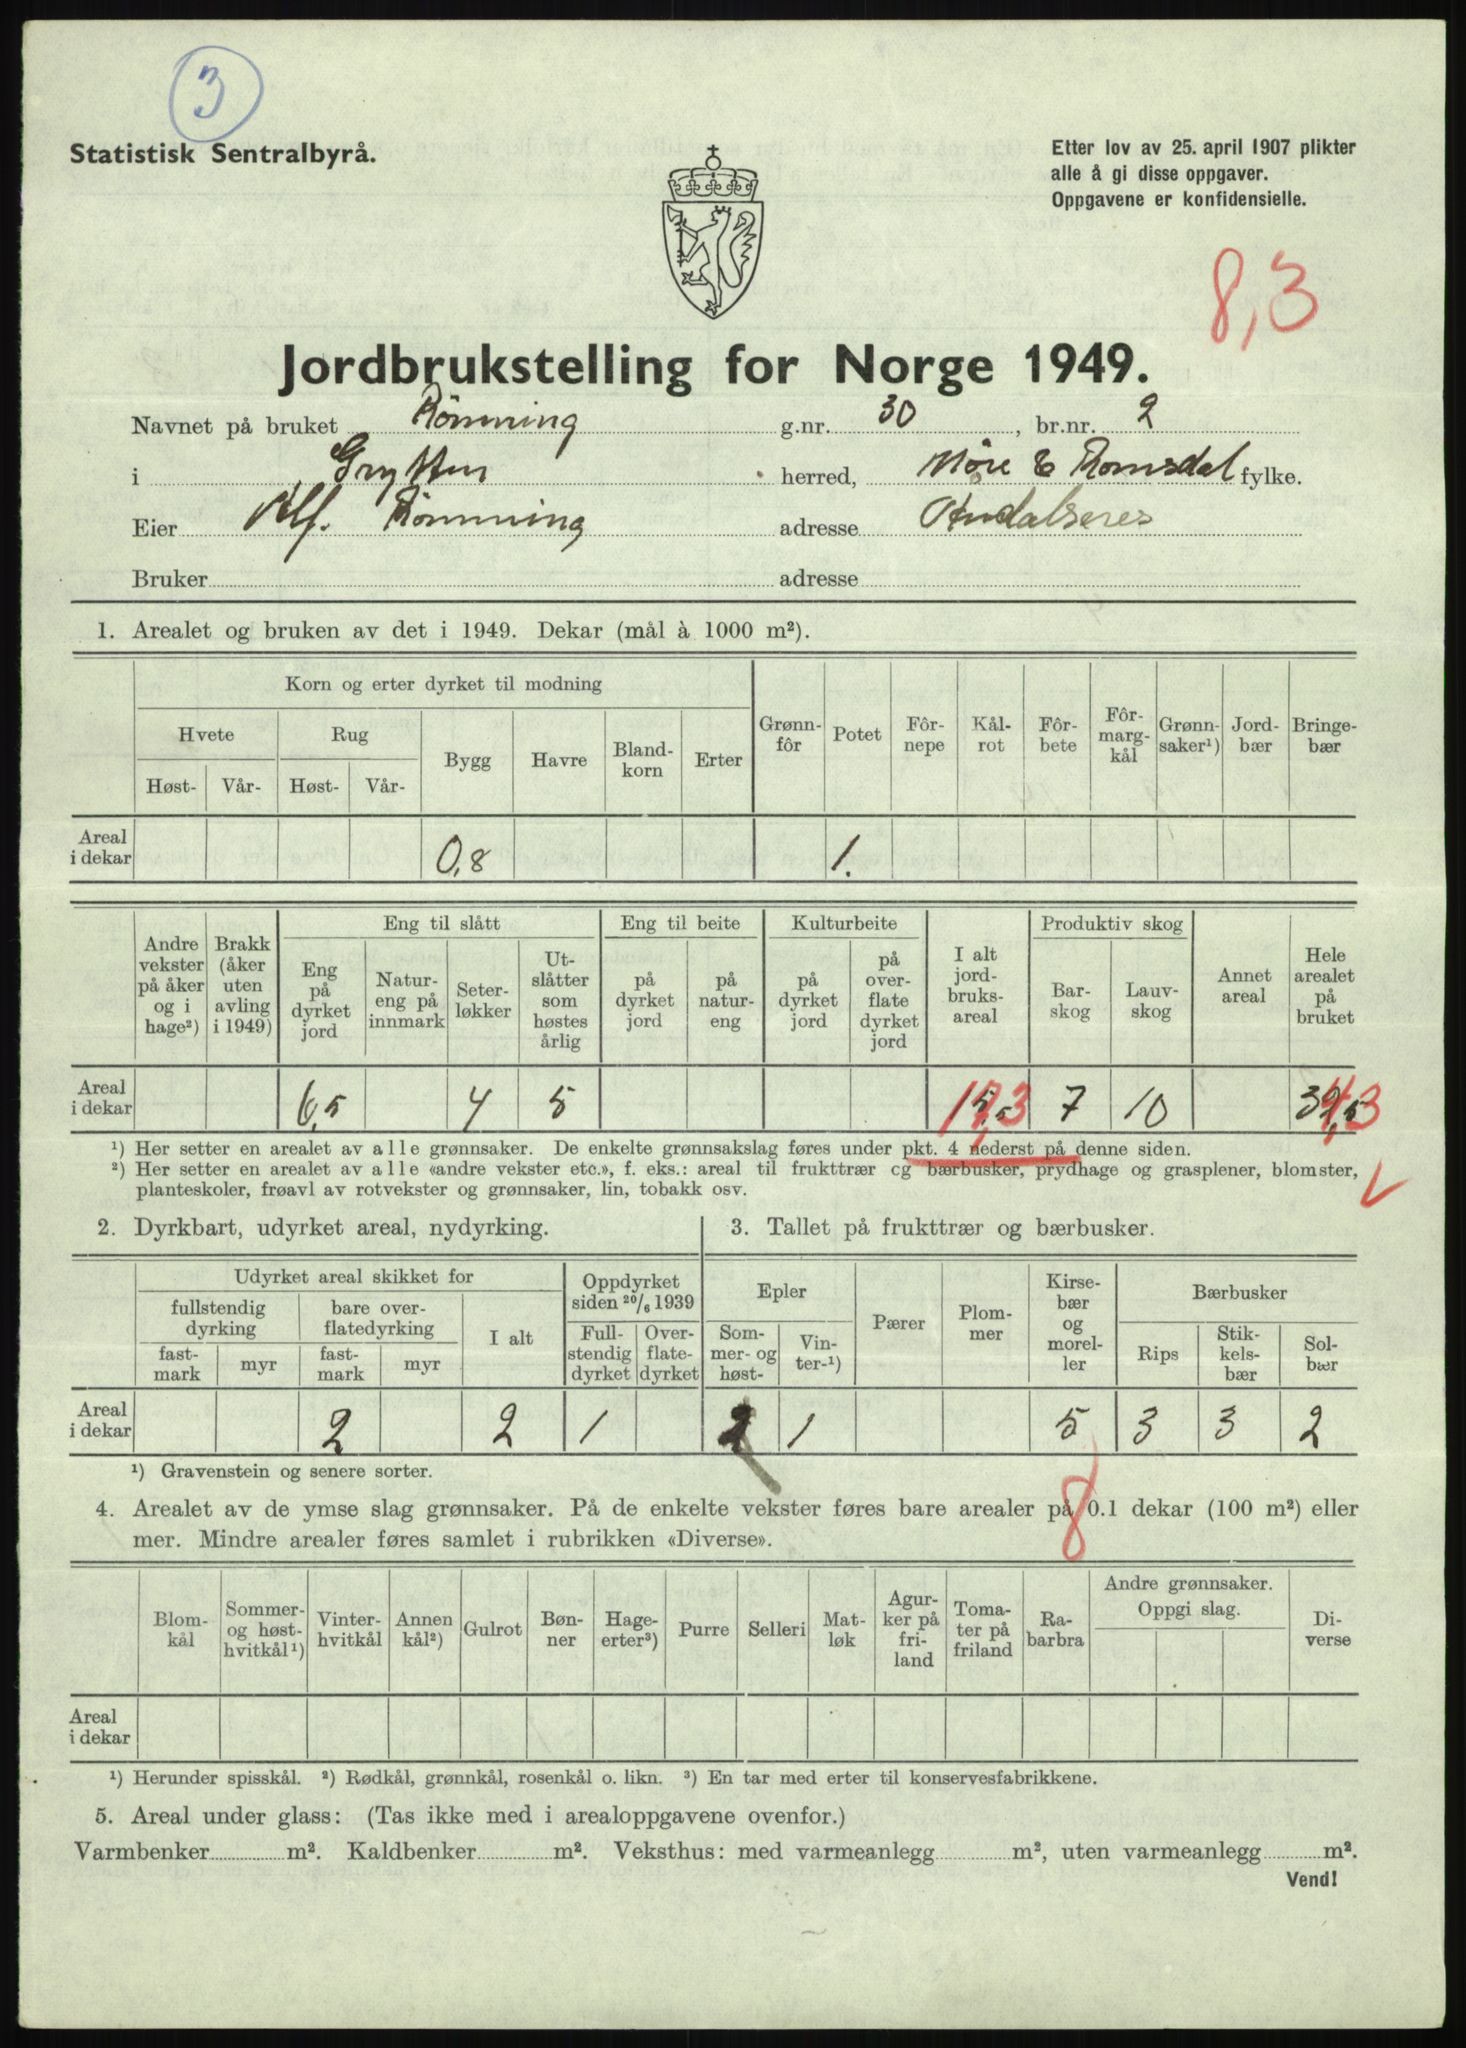 3
Statistisk Sentralbyrå.
Etter lov av 25. april 1907 plikter
alle å gi disse oppgaver.
Oppgavene er konfidensielle.
8,3
Jordbrukstelling for Norge 1949.
Navnet på bruket Römming g.nr. 30, br.nr. 2
i Grytten herred, Möre & Romsdal fylke.
Eier Alf. Römming adresse
Bruker adresse
1. Arealet og bruken av det i 1949. Dekar (mål à 1000 m²).
Korn og erter dyrket til modning
Hvete Rug Bygg Havre Bland-korn Erter Grønn-fôr Potet Fôr-nepe Kål-rot Fôr-bete Fôr-marg-kål Grønn-saker¹) Jord-bær Bringe-bær
Høst- Vår- Høst- Vår-
Areal i dekar 0,8 1.
Andre vekster på åker og i hage²) Brakk (åker uten avling i 1949) Eng til slått Eng til beite Kulturbeite I alt jord-bruks-areal Produktiv skog Annet areal Hele arealet på bruket
Eng på dyrket jord Natur-eng på innmark Seter-løkker Ut-slåtter som høstes årlig på dyrket jord på natur-eng på dyrket jord på over-flate dyrket jord Bar-skog Lauv-skog
Areal i dekar 6,5 4 5 7 10
¹) Her setter en arealet av alle grønnsaker. De enkelte grønnsakslag føres under pkt. 4 nederst på denne siden.
²) Her setter en arealet av alle «andre vekster etc.», f. eks.: areal til frukttrær cg bærbusker, prydhage og grasplener, blomster,
planteskoler, frøavl av rotvekster og grønnsaker, lin, tobakk osv.
2. Dyrkbart, udyrket areal, nydyrking.
3. Tallet på frukttrær og bærbusker.
Udyrket areal skikket for Oppdyrket siden 20/6 1939 Epler Pærer Plom-mer Kirse-bær og morel-ler Bærbusker
fullstendig dyrking bare over-flatedyrking I alt Full-stendig dyrket Over-flate-dyrket Som-mer- og høst- Vin-ter-¹) Rips Stik-kels-bær Sol-bær
fast-mark myr fast-mark myr
Areal i dekar 2 2 1 2 1 5 3 3 2
8
¹) Gravenstein og senere sorter.
4. Arealet av de ymse slag grønnsaker. På de enkelte vekster føres bare arealer på 0.1 dekar (100 m²) eller
mer. Mindre arealer føres samlet i rubrikken «Diverse».
Blom-kål Sommer- og høst-hvitkål¹) Vinter-hvitkål Annen kål²) Gulrot Bøn-ner Hage-erter³) Purre Selleri Mat-løk Agur-ker på fri-land Toma-ter på friland Ra-barbra Andre grønnsaker. Oppgi slag. Di-verse
Areal i dekar
¹) Herunder spisskål. ²) Rødkål, grønnkål, rosenkål o. likn. ³) En tar med erter til konservesfabrikkene.
5. Areal under glass: (Tas ikke med i arealoppgavene ovenfor.)
Varmbenker m². Kaldbenker m². Veksthus: med varmeanlegg m², uten varmeanlegg m².
Vend!